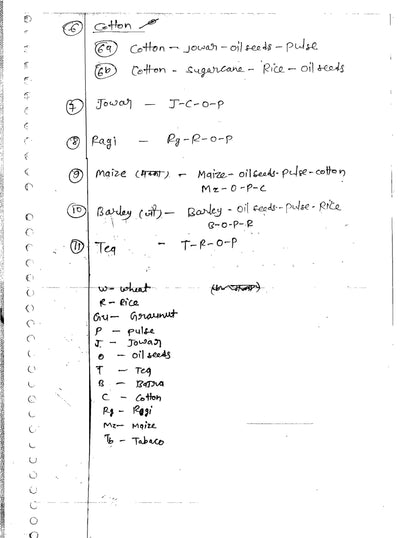 ⑥ Cotton
6a Cotton - Jowar - oil seeds - pulse
6b Cotton - Sugarcane - Rice - oil seeds
⑦ Jowar — J-C-O-P
⑧ Ragi — Rg-R-O-P
⑨ Maize (मक्का) - Maize - oil seeds - pulse - cotton
Mz-O-P-C
⑩ Barley (जौ) - Barley - oil seeds - pulse - Rice
B-O-P-R
⑪ Tea - T-R-O-P
W- wheat
R - Rice
Gu- Graunut
P - pulse
J - Jowar
O - oil seeds
T - Tea
B - Bajra
C - Cotton
Rg - Ragi
Mz- Maize
Tb - Tabaco